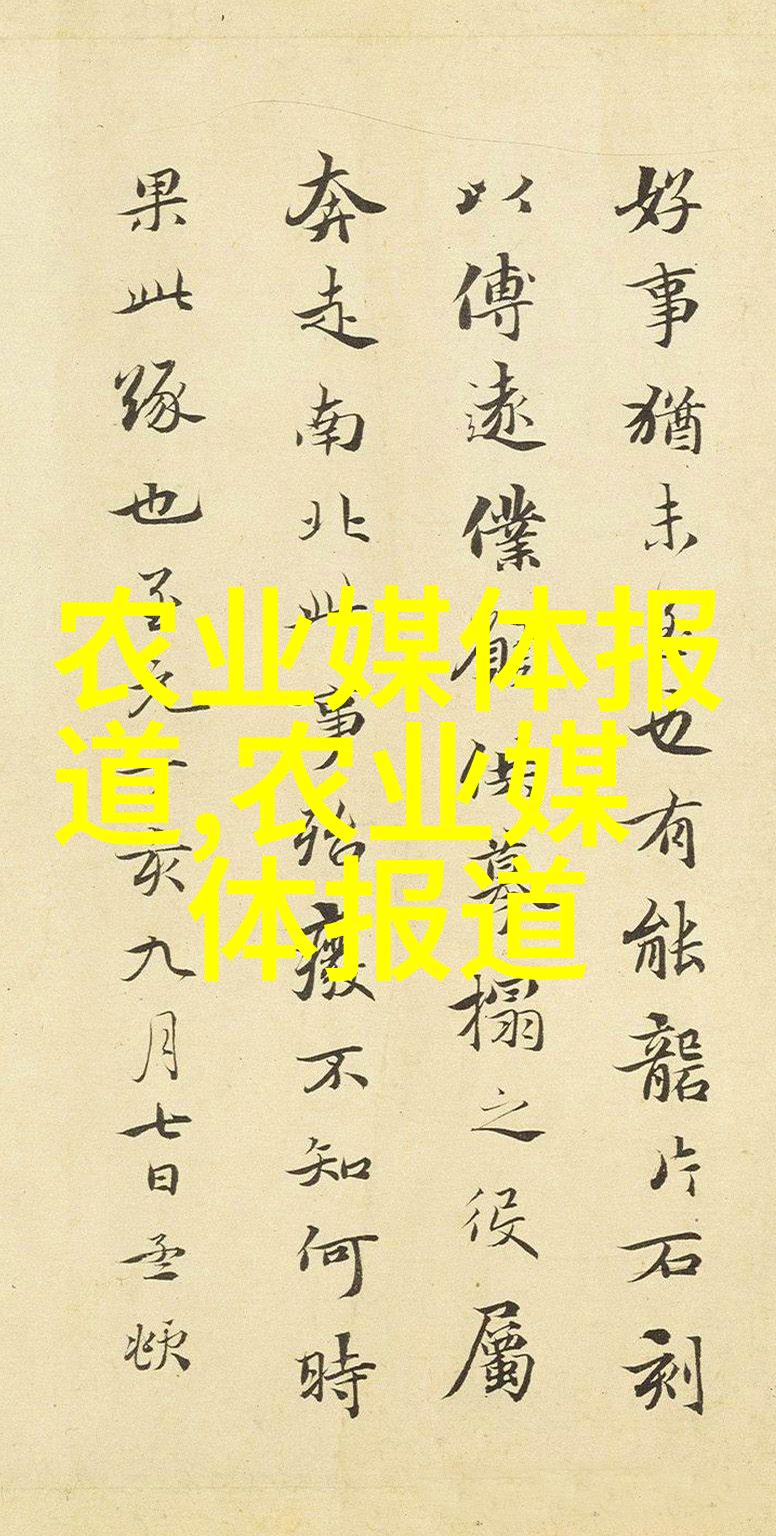 好事猶未□也有能礱片石刻
以傳遠僕願供摹搨之役屬
奔走南北此事殆廢不知何時
果此緣也至元丁亥九月七日孟頫
农业媒体报
道,农业媒
体报道